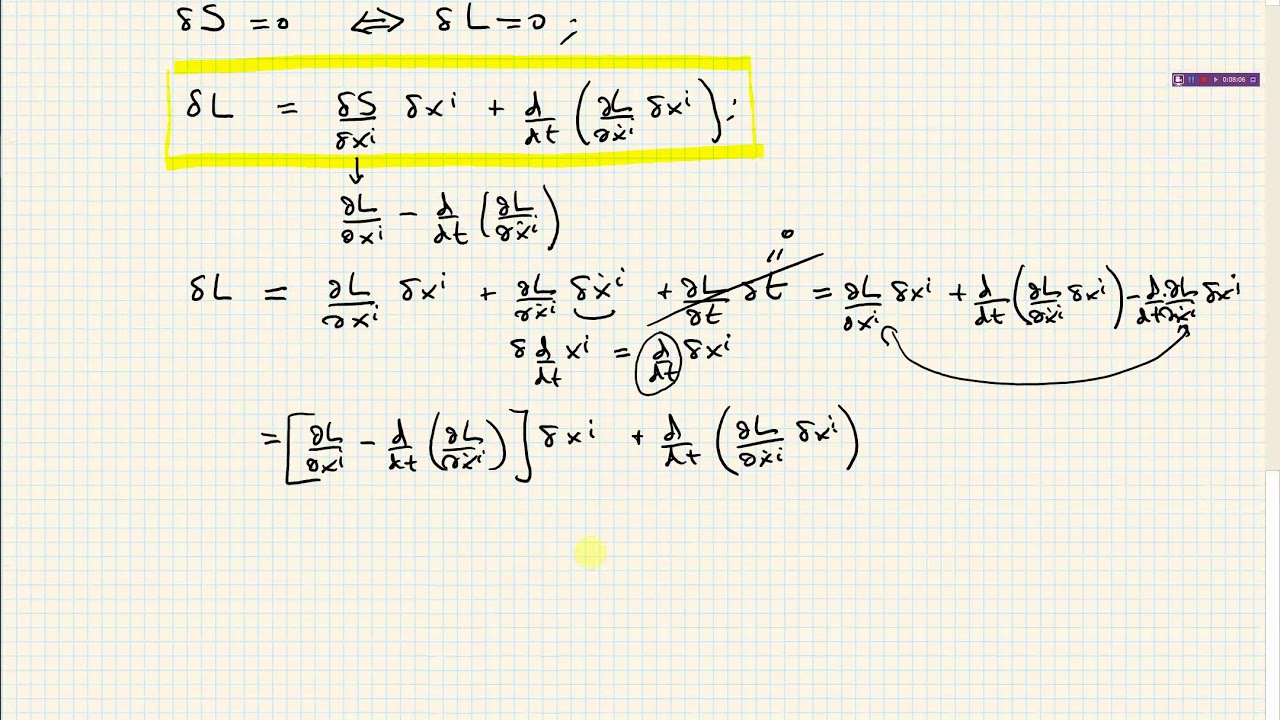 δS = 0 ⇔ δL = 0 ;
δL = δS/δxⁱ δxⁱ + d/dt (∂L/∂ẋⁱ δxⁱ) ;
0:08:06
↓
∂L/∂xⁱ − d/dt (∂L/∂ẋⁱ)
0
"
δL = ∂L/∂xⁱ δxⁱ + ∂L/∂ẋⁱ δẋⁱ + ∂L/∂t δt = ∂L/∂xⁱ δxⁱ + d/dt (∂L/∂ẋⁱ δxⁱ) − d/dt ∂L/∂ẋⁱ δxⁱ
δ d/dt xⁱ = d/dt δxⁱ
= [∂L/∂xⁱ − d/dt (∂L/∂ẋⁱ)] δxⁱ + d/dt (∂L/∂ẋⁱ δxⁱ)